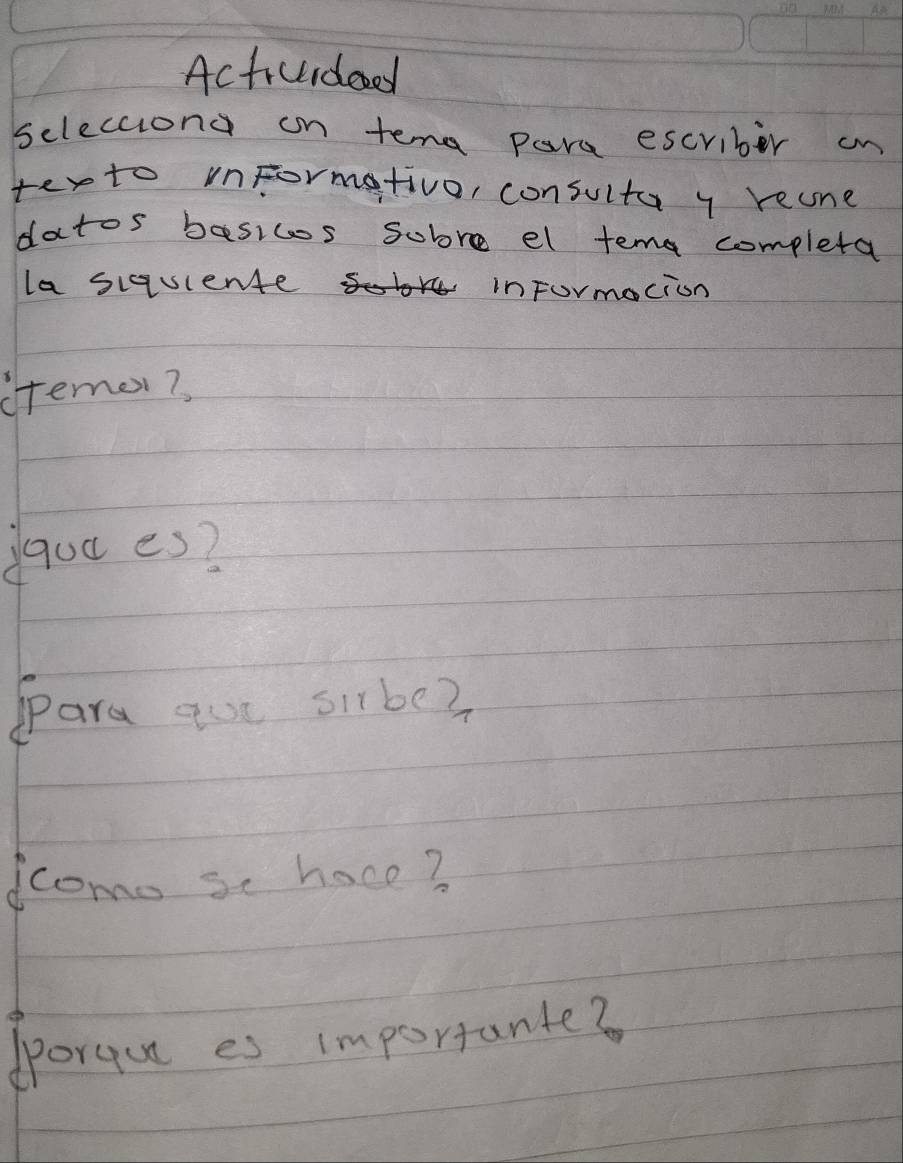 DD MM AA
Actividad
selecciona un tema para escribir un
texto informativo, consulta y reune
datos basicos sobre el tema completa
la siguiente sobre informacion
¿Tema?
¿que es?
¿Para que sirbe?
¿como se hace?
¿porque es importante?